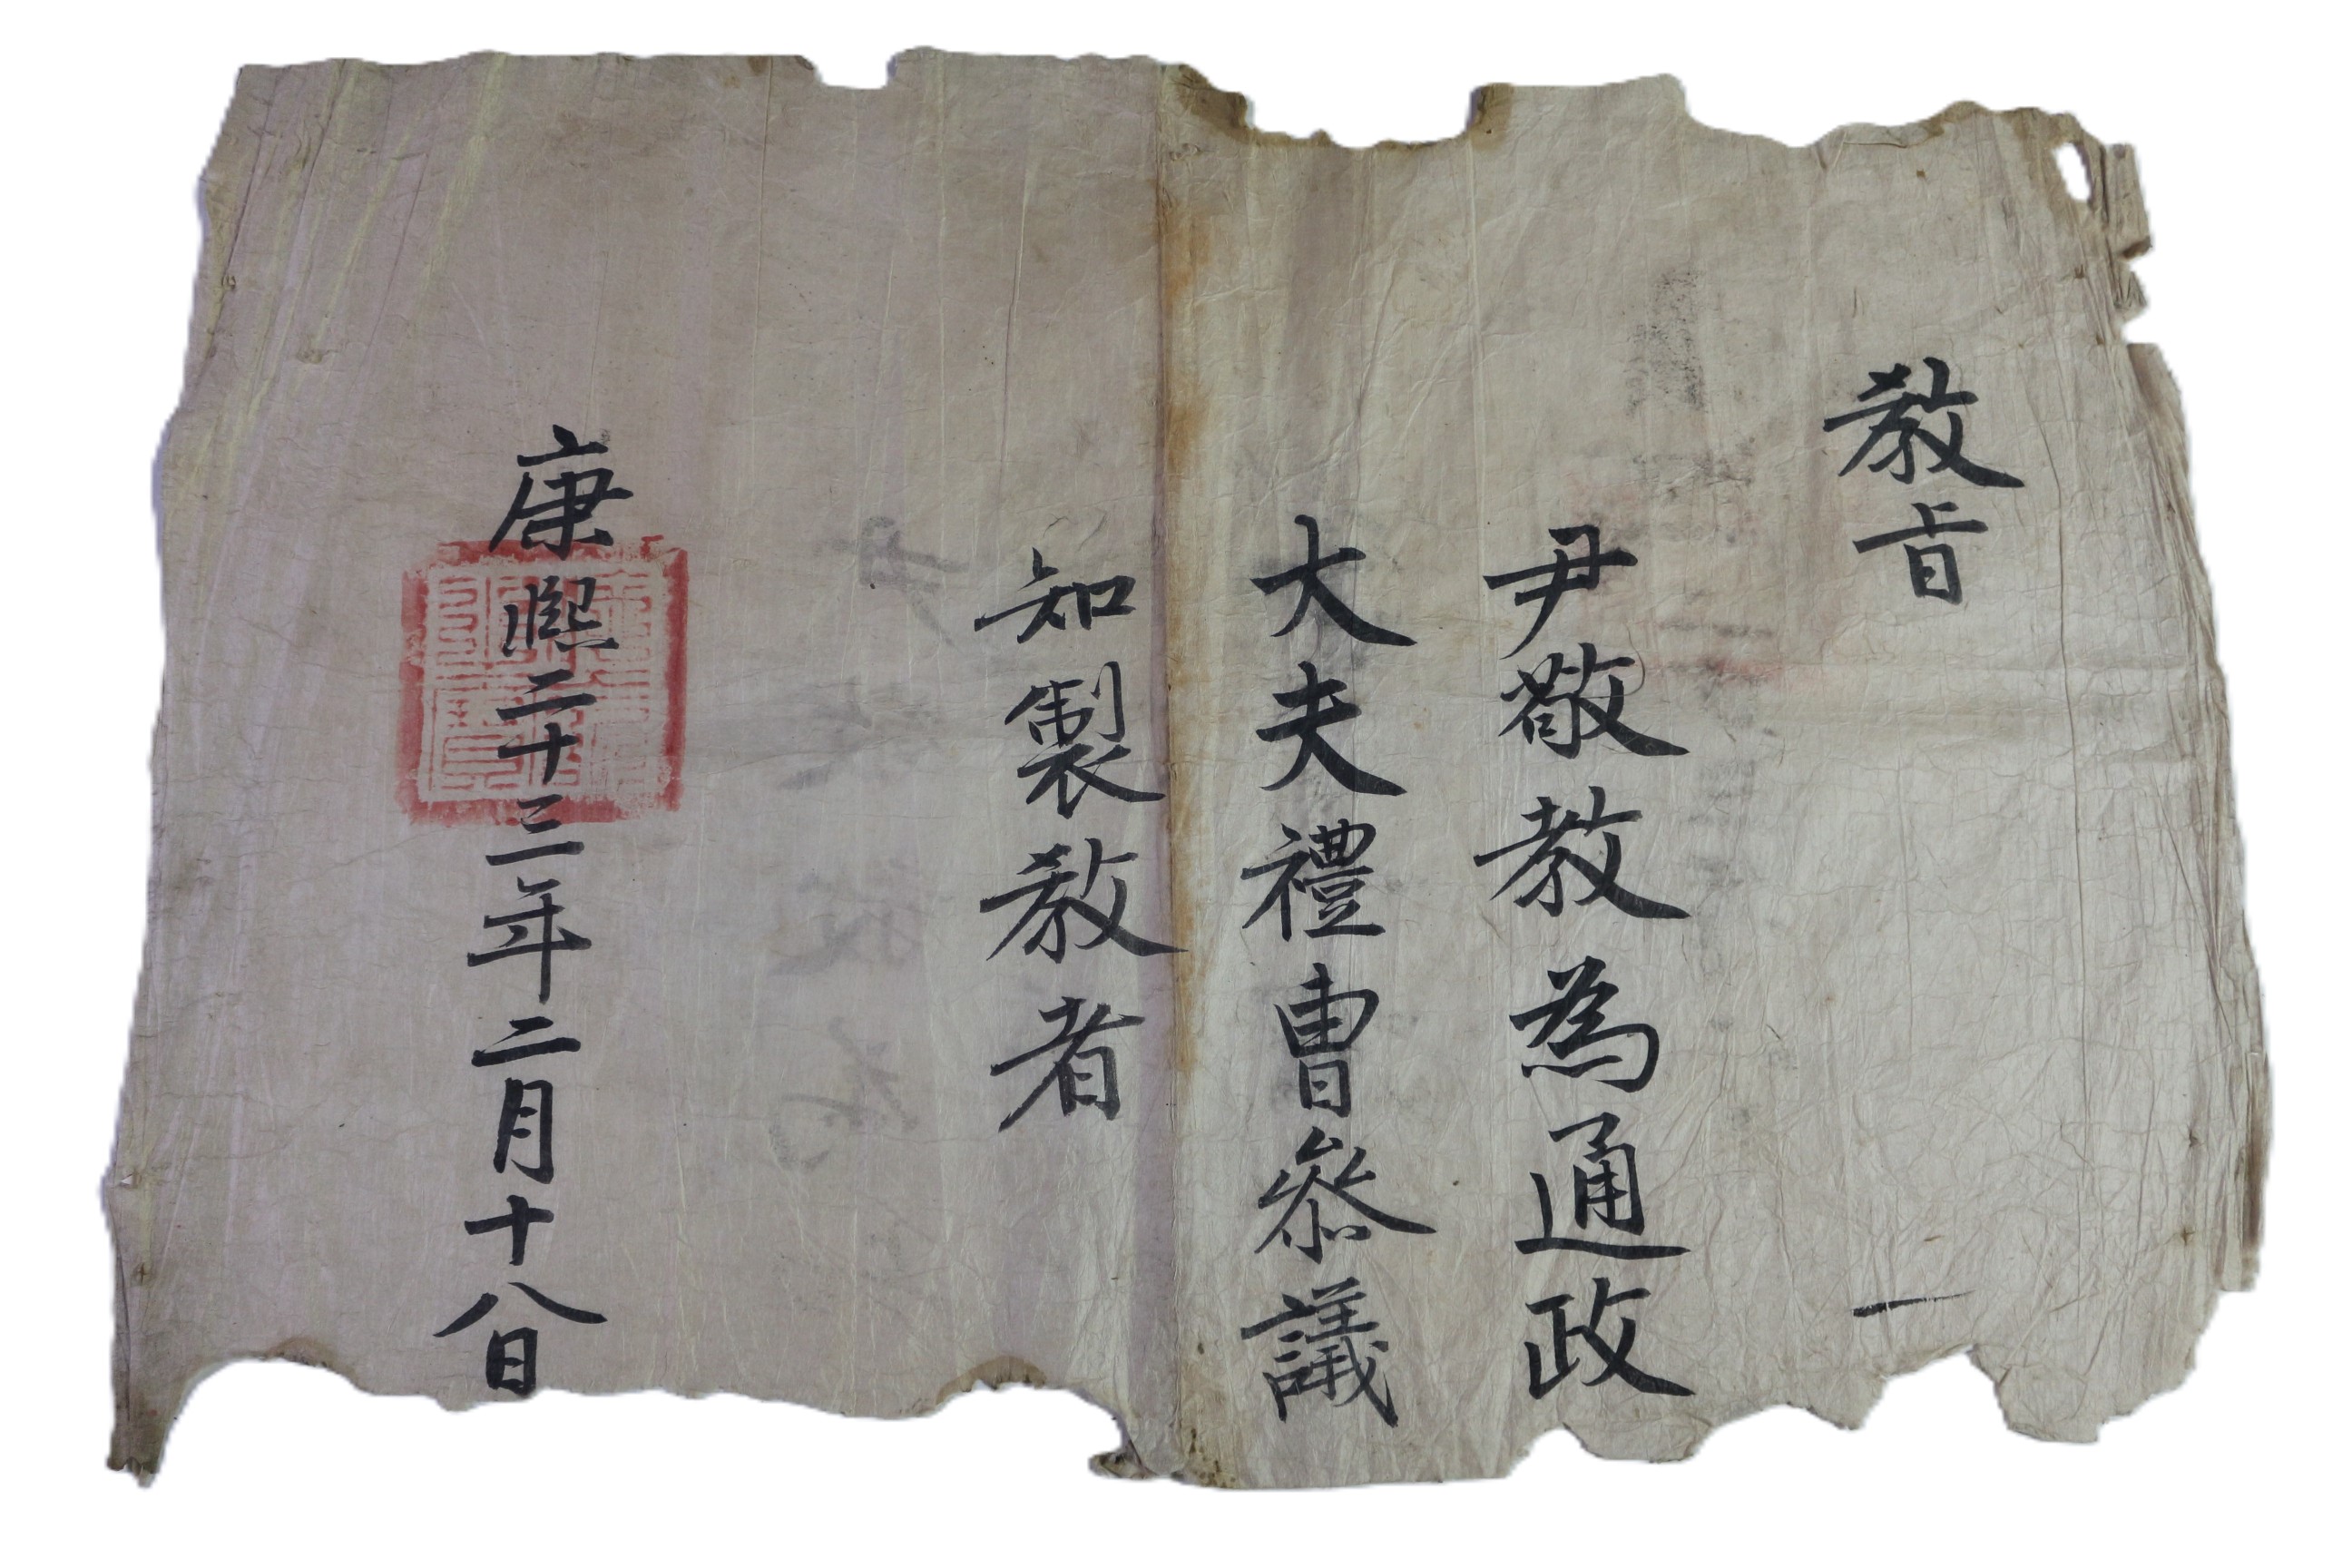 敎旨
尹敬教為通政
大夫禮曺參議
知製敎者
康熙二十三年二月十八日